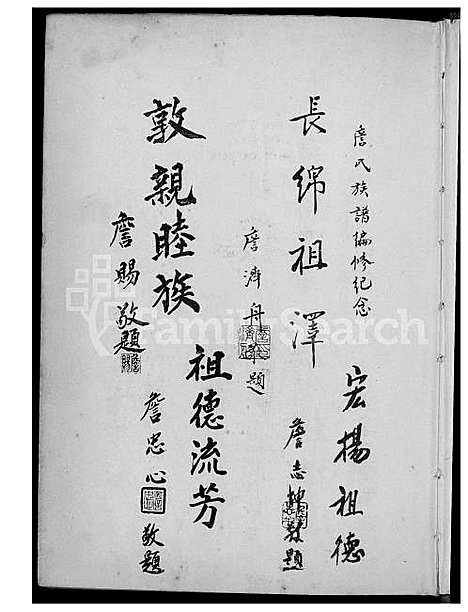 詹氏族譜編修紀念
長綿祖澤
詹濟舟敬題
宏揚祖德
詹志
敬題
敦親睦族
詹賜敬題
祖德流芳
詹忠心
敬題
FamilySearch